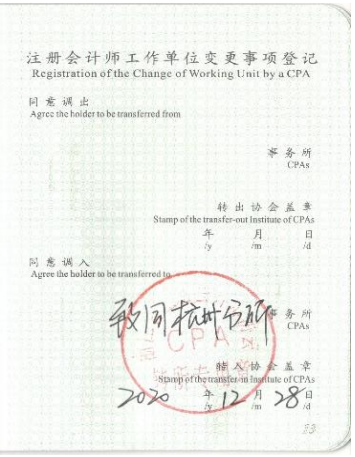 注册会计师工作单位变更事项登记
Registration of the Change of Working Unit by a CPA
同意调出
Agree the holder to be transferred from
事务所
CPAs
转出协会盖章
Stamp of the transfer-out Institute of CPAs
年 月 日
/y /m /d
同意调入
Agree the holder to be transferred to
致同杭州分所 事务所
CPAs
CPA
转入协会盖章
Stamp of the transfer-in Institute of CPAs
2020年12月28日
/y /m /d